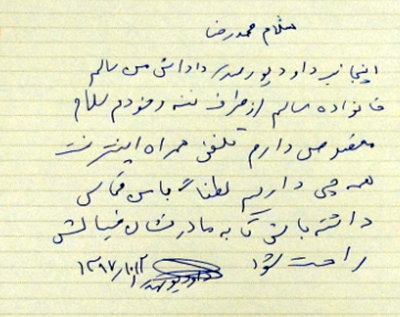 سلام محمدرضا
اینجانب داود پورصدر داداش من سالم
خانواده سالم از طرف ننه و خودم سلام
مخصوص دارم تلفن همراه اینترنت
همه چی داریم لطفا باهاش تماس
داشته باش تا به مادرشان خیالش
راحت شود
۱۳۹۷/۱۰/۱۲